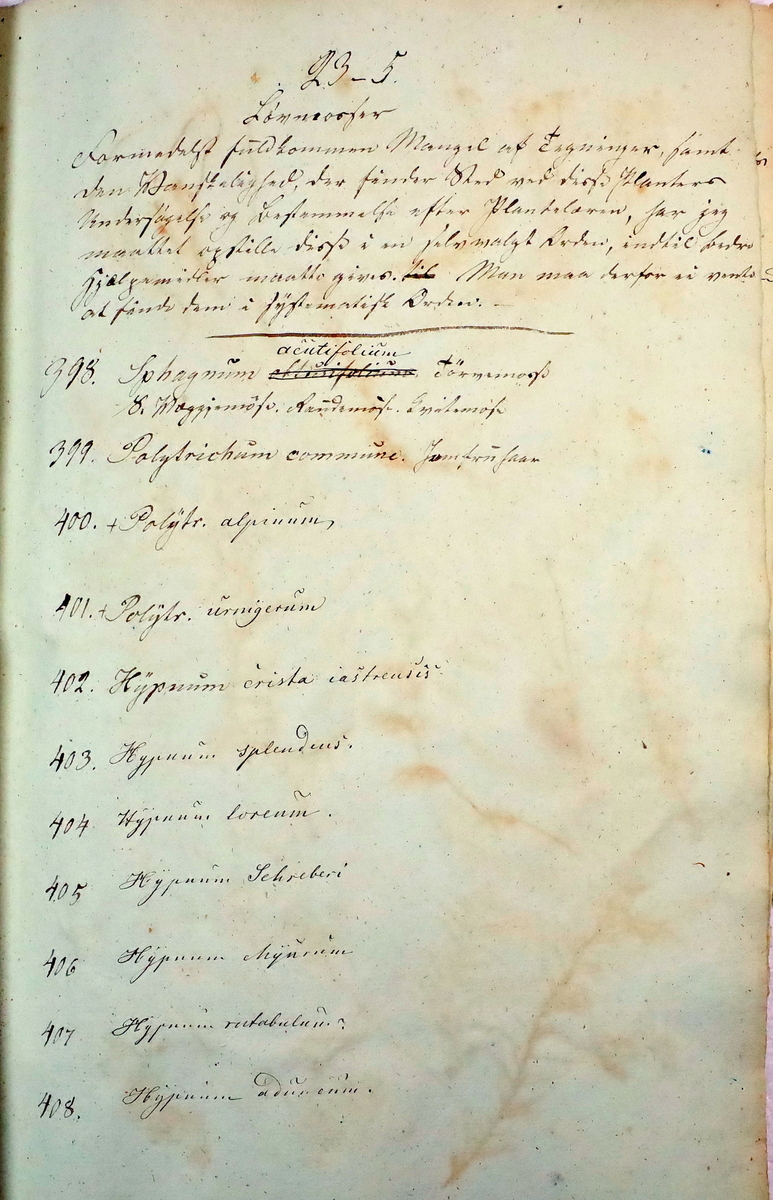 23-5.
Løvmosser
Formedelst fuldkommen Mangel af Tegninger, samt
den Vanskelighed, der finder Sted ved disse Planters
Undersøgelse og Bestemmelse efter Plantelæren, har jeg
maattet opstille disse i en selvvalgt Orden, indtil bedre
Hjælpemidler maatte gives. til Man maa derfor ei vente
at finde dem i systematisk Orden. -
acutifolium
398. Sphagnum obtusifolium Törvemoss
S. Væggjemose. Raudemose. Kvitemose
399. Polytrichum commune. Jomfruhaar
400. + Polytr. alpinum,
401. + Polytr. urnigerum
402. Hypnum crista castrensis
403. Hypnum splendens.
404 Hypnum loreum.
405 Hypnum Schreberi
406 Hypnum Myurum
407 Hypnum rutabulum.
408. Hypnum aduncum.